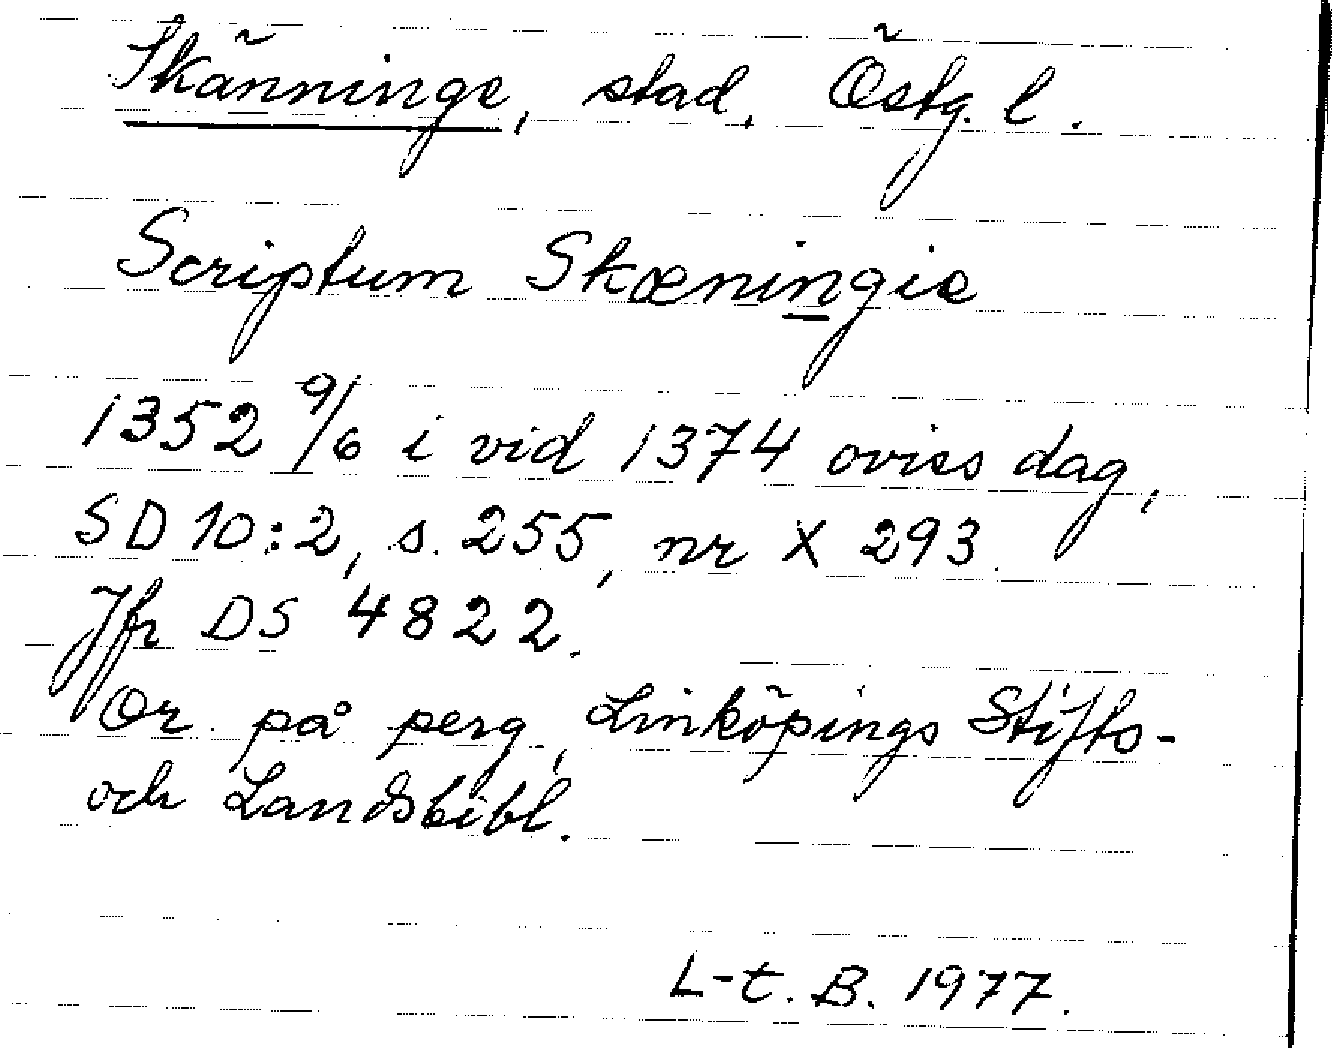 Skänninge, stad, Östg. l.
Scriptum Skæningie
1352 9/6 i vid 1374 oviss dag,
SD 10:2, s. 255, nr X 293.
Jfr DS 4822.
Or. på perg, Linköpings Stifts-
och Landsbibl.
L-t. B. 1977.